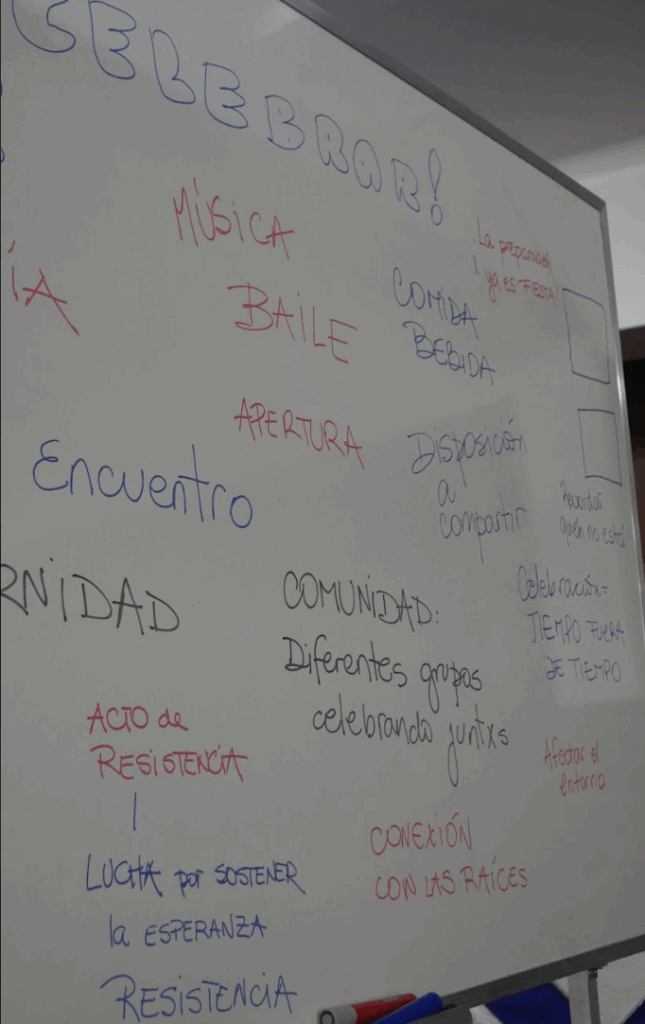 CELEBRAR!
MÚSICA
ÍA
BAILE
COMIDA
BEBIDA
La preparación
ya es FIESTA
APERTURA
Encuentro
Disposición
a
compartir
Recordar
quién no está
RNIDAD
COMUNIDAD:
Diferentes grupos
celebrando juntxs
Celebración=
TIEMPO FUERA
DE TIEMPO
ACTO de
RESISTENCIA
LUCHA por SOSTENER
la ESPERANZA
RESISTENCIA
CONEXIÓN
CON LAS RAÍCES
Afectar el
entorno